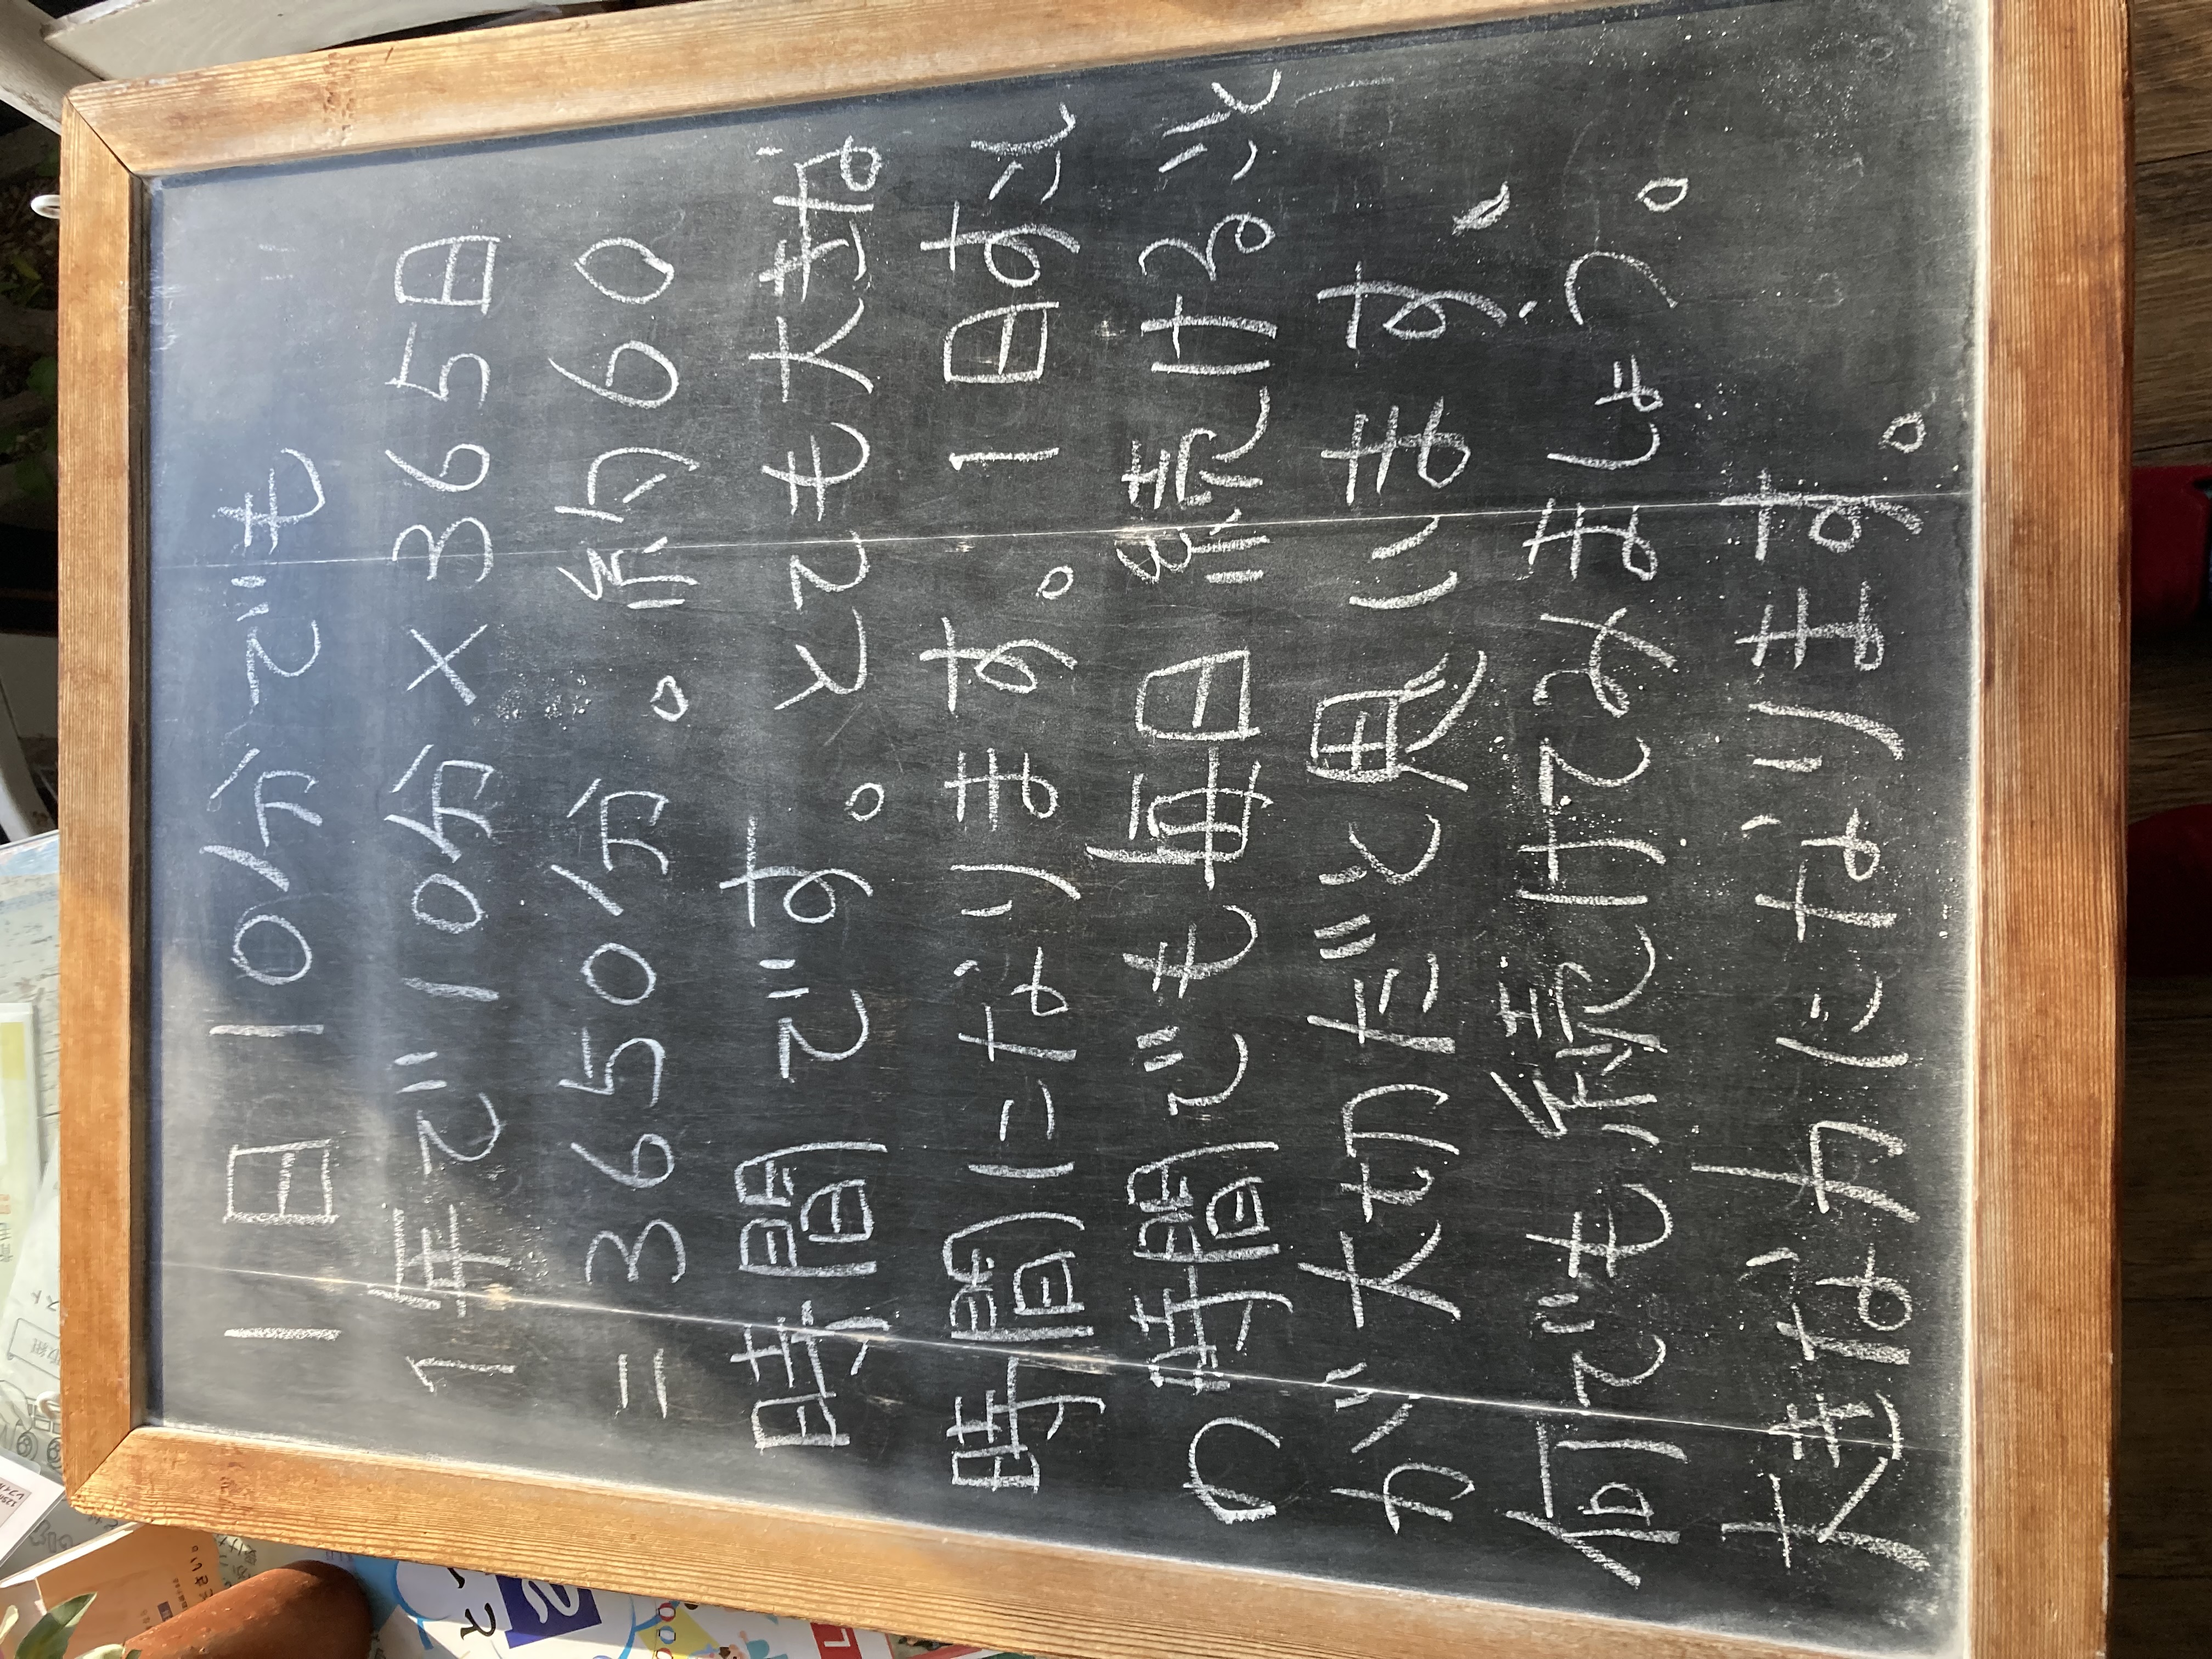 一日10分でも
1年で10分×365日
=3650分。約60
時間です。とても大切な
時間になります。1日すこし
の時間でも毎日続けること
が大切だと思います、
何でも続けてみましょう。
大きな力になります。